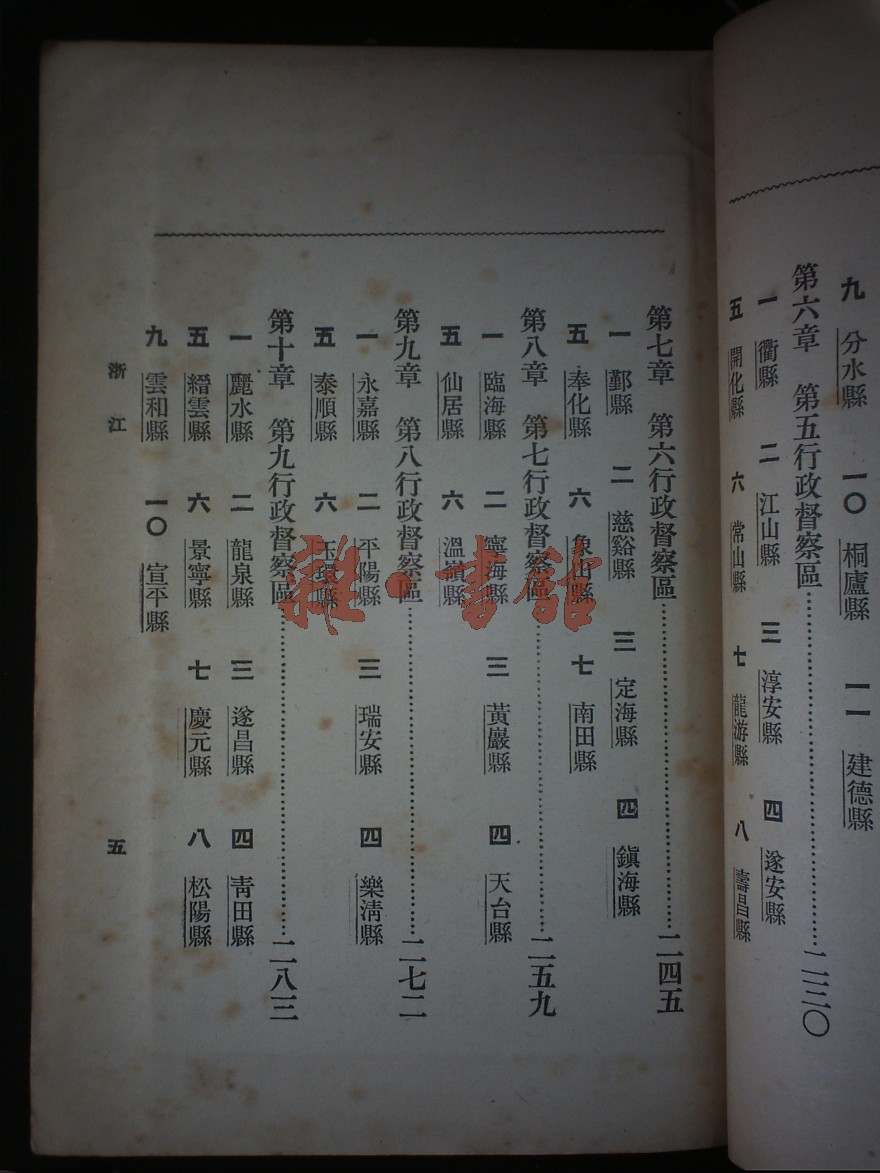 九 分水縣 一〇 桐廬縣 一一 建德縣
第六章 第五行政督察區……二三〇
一 衢縣 二 江山縣 三 淳安縣 四 遂安縣
五 開化縣 六 常山縣 七 龍游縣 八 壽昌縣
第七章 第六行政督察區……二四五
一 鄞縣 二 慈谿縣 三 定海縣 四 鎮海縣
五 奉化縣 六 象山縣 七 南田縣
第八章 第七行政督察區……二五九
一 臨海縣 二 寧海縣 三 黃巖縣 四 天台縣
五 仙居縣 六 溫嶺縣
第九章 第八行政督察區……二七二
一 永嘉縣 二 平陽縣 三 瑞安縣 四 樂清縣
五 泰順縣 六 玉環縣
第十章 第九行政督察區……二八三
一 麗水縣 二 龍泉縣 三 遂昌縣 四 青田縣
五 縉雲縣 六 景寧縣 七 慶元縣 八 松陽縣
九 雲和縣 一〇 宣平縣
浙江 五
雜·書館